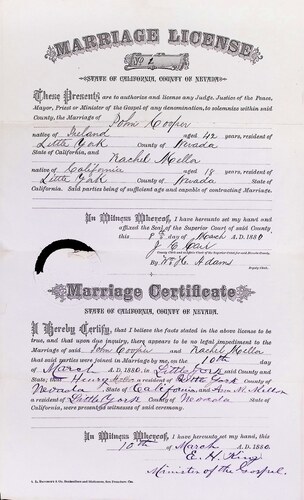 MARRIAGE LICENSE
No 1
STATE OF CALIFORNIA, COUNTY OF NEVADA.
These Presents are to authorize and license any Judge, Justice of the Peace,
Mayor, Priest or Minister of the Gospel of any denomination, to solemnize within said
County, the Marriage of John Cooper
native of Ireland aged 42 years, resident of
Little York County of Nevada
State of California, and Rachel Mellor
native of California aged 18 years, resident of
Little York County of Nevada State of
California. Said parties being of sufficient age and capable of contracting Marriage.
In Witness Whereof, I have hereunto set my hand and
affixed the Seal of the Superior Court of said County
this 8th day of March A.D. 1880
J. C.
By Wm H. Adams
Deputy Clerk
Marriage Certificate
STATE OF CALIFORNIA, COUNTY OF NEVADA.
I Hereby Certify, that I believe the facts stated in the above license to be
true, and that upon due inquiry, there appears to be no legal impediment to the
Marriage of said John Cooper and Rachel Mellor
that said parties were joined in Marriage by me, on the 10th day of
March A.D. 1880, in Little York said County and
State; that Henry a resident of Little York County of
Nevada State of California and Ann M. Mellor
a resident of Little York County of Nevada State of
California, were present as witnesses of said ceremony.
In Witness Whereof, I have hereunto set my hand, this
10th day of March A.D. 1880.
E. H. King
Minister of the Gospel.